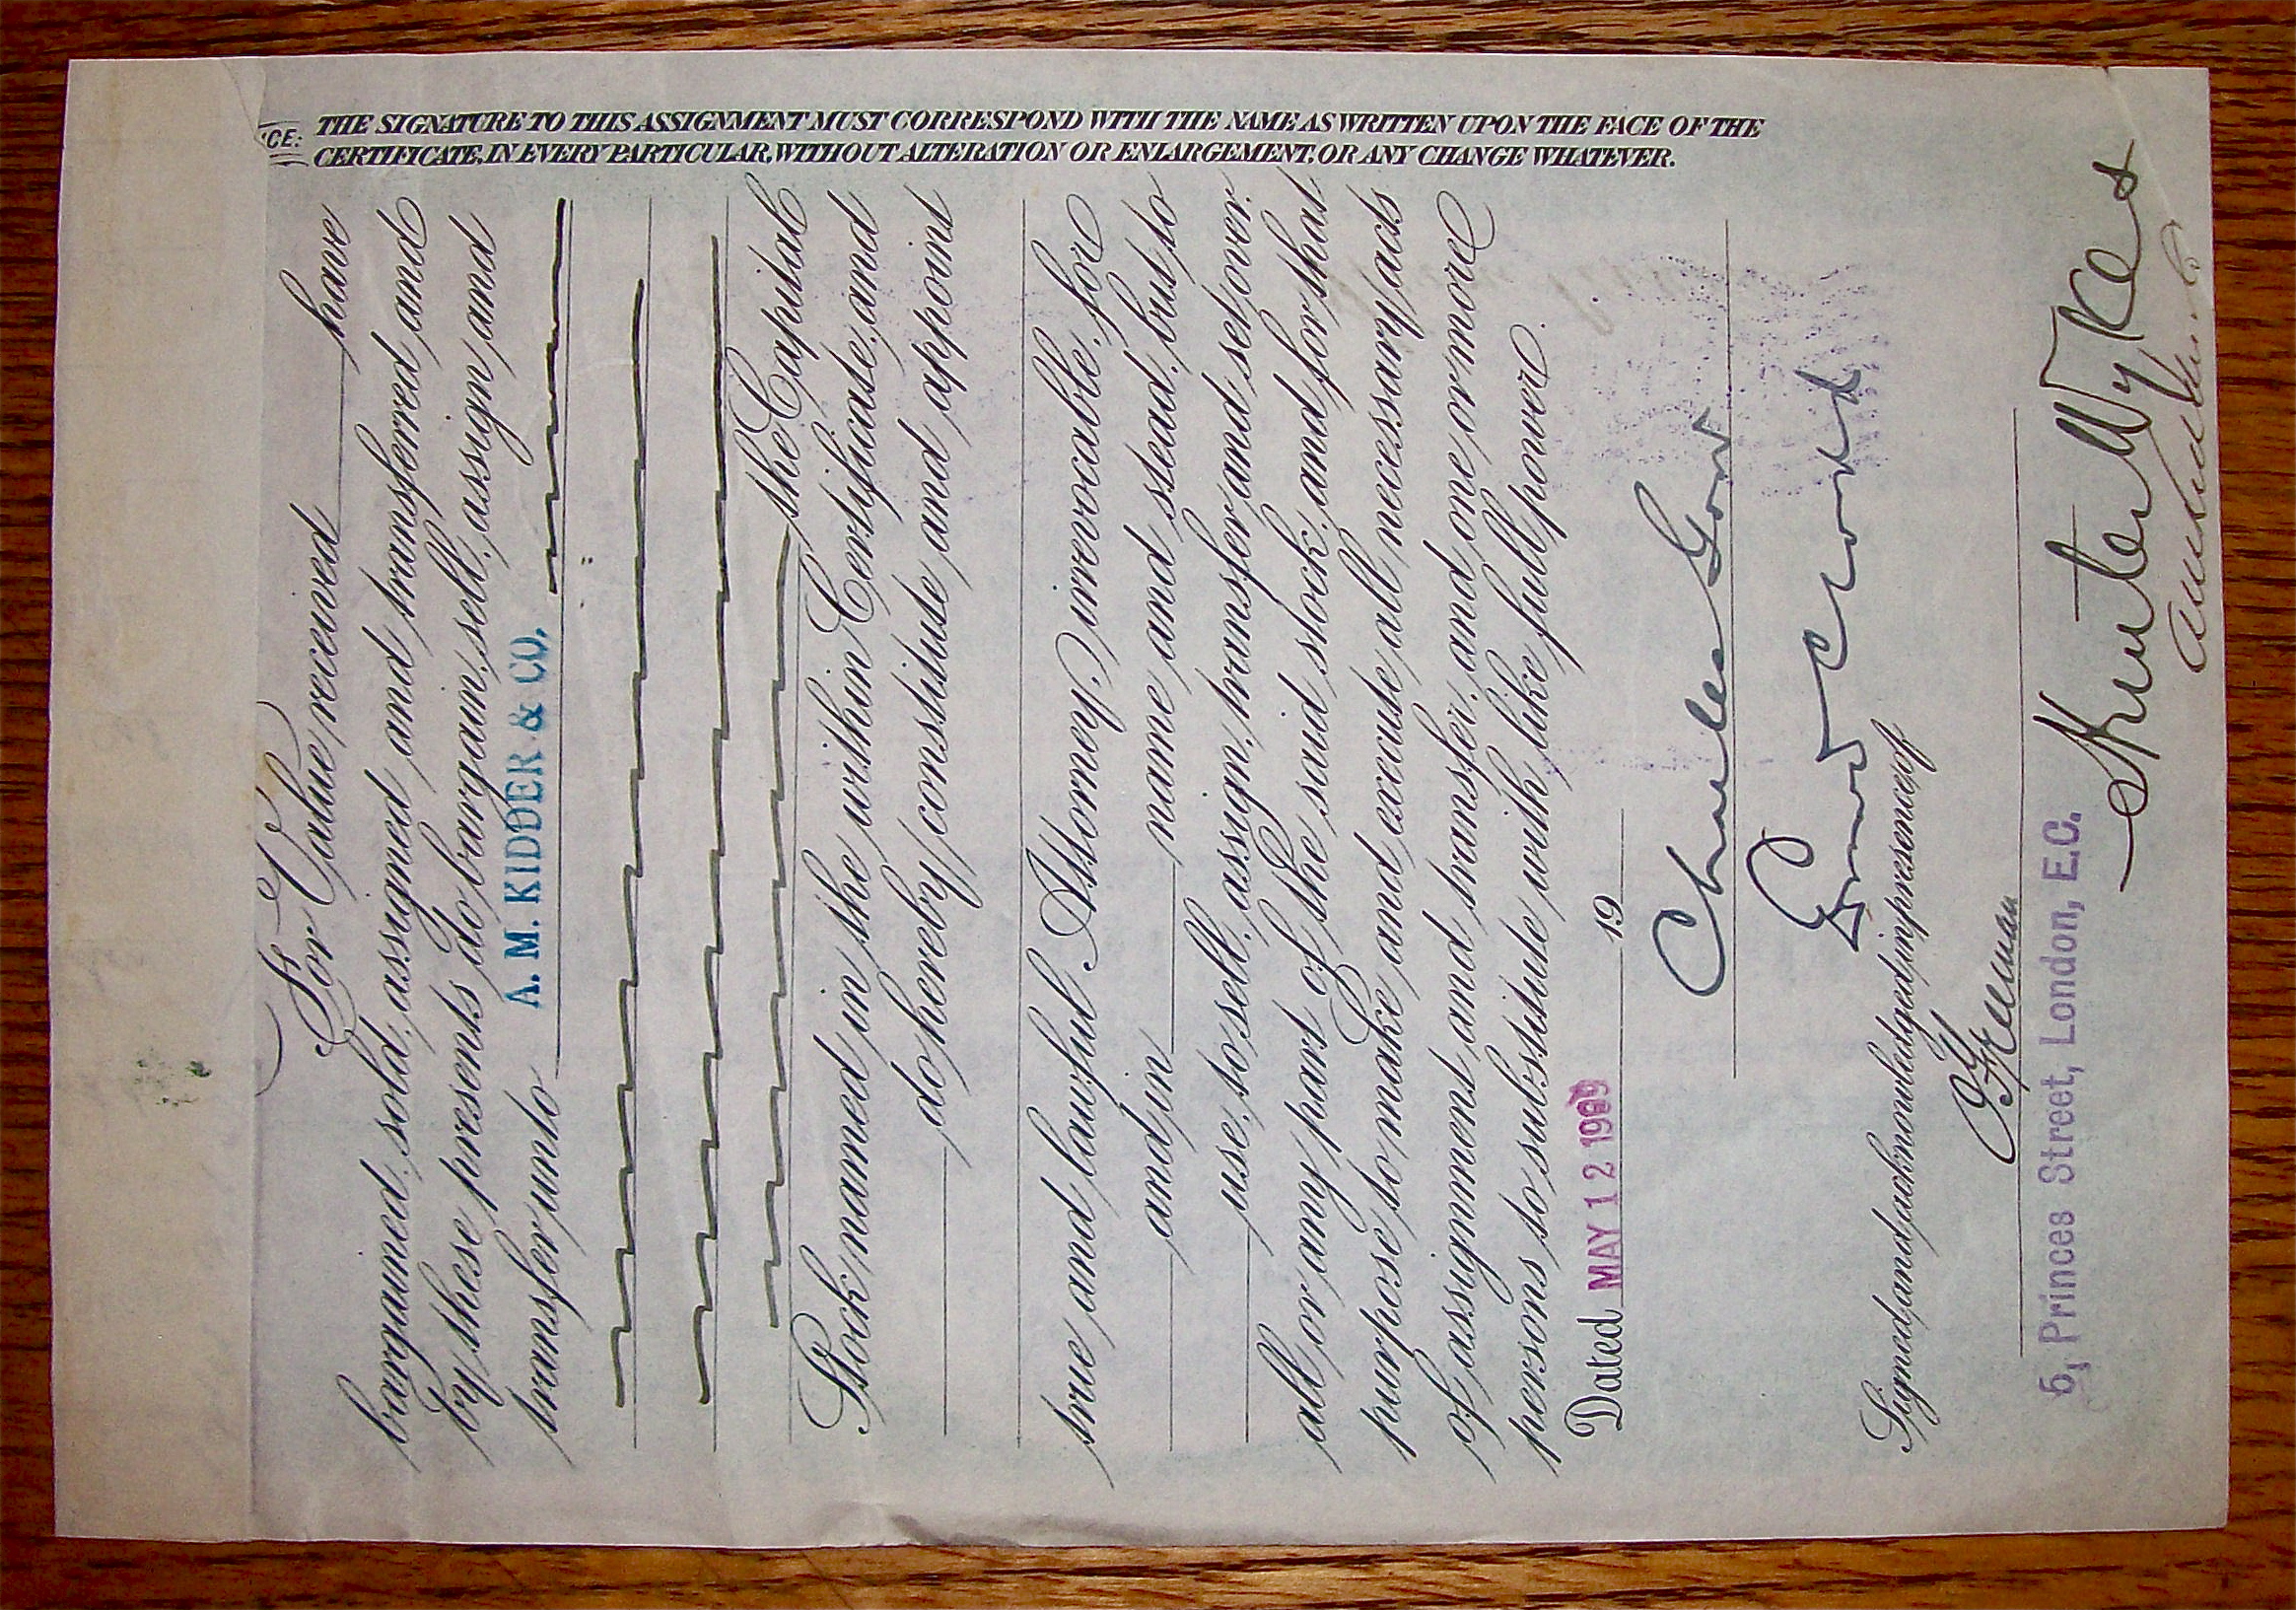 CE: THE SIGNATURE TO THIS ASSIGNMENT MUST CORRESPOND WITH THE NAME AS WRITTEN UPON THE FACE OF THE
CERTIFICATE, IN EVERY PARTICULAR, WITHOUT ALTERATION OR ENLARGEMENT, OR ANY CHANGE WHATEVER.
For Value received have
bargained, sold, assigned and transferred and
by these presents do bargain, sell, assign and
transfer unto A. M. KIDDER & CO.
the Capital
Stock named in the within Certificate, and
do hereby constitute and appoint
true and lawful Attorney, irrevocable, for
and in name and stead, but to
use, to sell, assign, transfer and set over
all or any part of the said stock, and for that
purpose to make and execute all necessary acts
of assignment and transfer, and one or more
persons to substitute with like full power.
Dated MAY 12 1909 19
Charles Gow
Signed and acknowledged in presence of
5, Princes Street, London, E.C.
Hunter Wykes